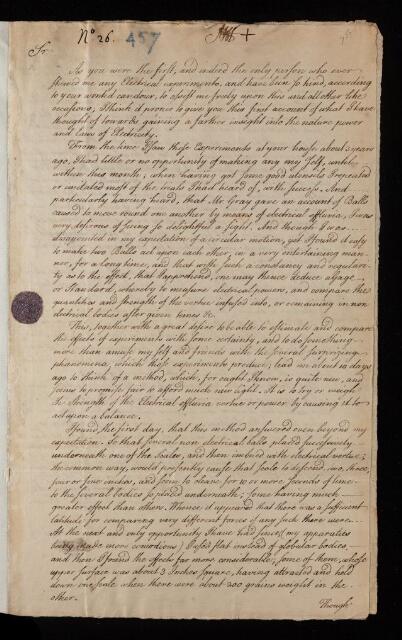 Nº 26.
457
Sr.
As you were the first, and indeed the only person who ever
shewed me any Electrical experiments, and have been so kind, according
to your wonted candour, to assist me freely upon this and all other like
occasions, I think it proper to give you this first account of what I have
thought of towards gaining a farther insight into the nature power
and laws of Electricity.
From the time I saw these Experiments at your house about 3 years
ago, I had little or no opportunity of making any my self, until
within this month; when having got some good utensils I repeated
or imitated most of the trials I had heard of, with success. And
particularly having heard, that Mr Gray gave an account of Balls
caused to move round one another by means of electrical effluvia, I was
very desirous of seeing so delightfull a sight. And though I was
disappointed in my expectation of a circular motion, yet I found it easy
to make two Balls act upon each other, in a very entertaining man-
ner, for a long time, and that with such a constancy and regulari-
ty as to the effect, that I apprehend, one may thence deduce a gage
or Standard, whereby to measure electrical powers, and compare the
quantities and strength of the vertue infused into, or remaining in non
electrical bodies after given times &c.
This, together with a great desire to be able to estimate and compare
the effects of experiments with some certainty, and to do something
more than amuse my self and friends with the several surprising
phænomena, which those experiments produce; lead me about 10 days
ago to think of a method, which, for ought I know, is quite new, and
seems to promise fair to afford much new light. It is to try or weigh
the strength of the Electrical effluvia vertue or power by causing it to
act upon a balance.
I found the first day, that this method answered even beyond my
expectation. So that several non electrical balls placed successively
underneath one of the scales, and then imbued with electrical vertue,
the common way, would presently cause that scale to descend, two, three,
four or four inches, and some to cleave for 10 or more seconds of time
to the several bodies so placed underneath; some having much
greater effect than others. Whence it appeared that there was a sufficient
latitude for comparing very different forces of any such there were.
At the next and only opportunity I have had since, my apparatus
being made more comodious; I used flat instead of globular bodies,
and then I found the effects far more considerable; some of them, whose
upper surface was about 3 Inches square, having attracted and held
down one scale when there were about 200 grains weight in the
other.
Though